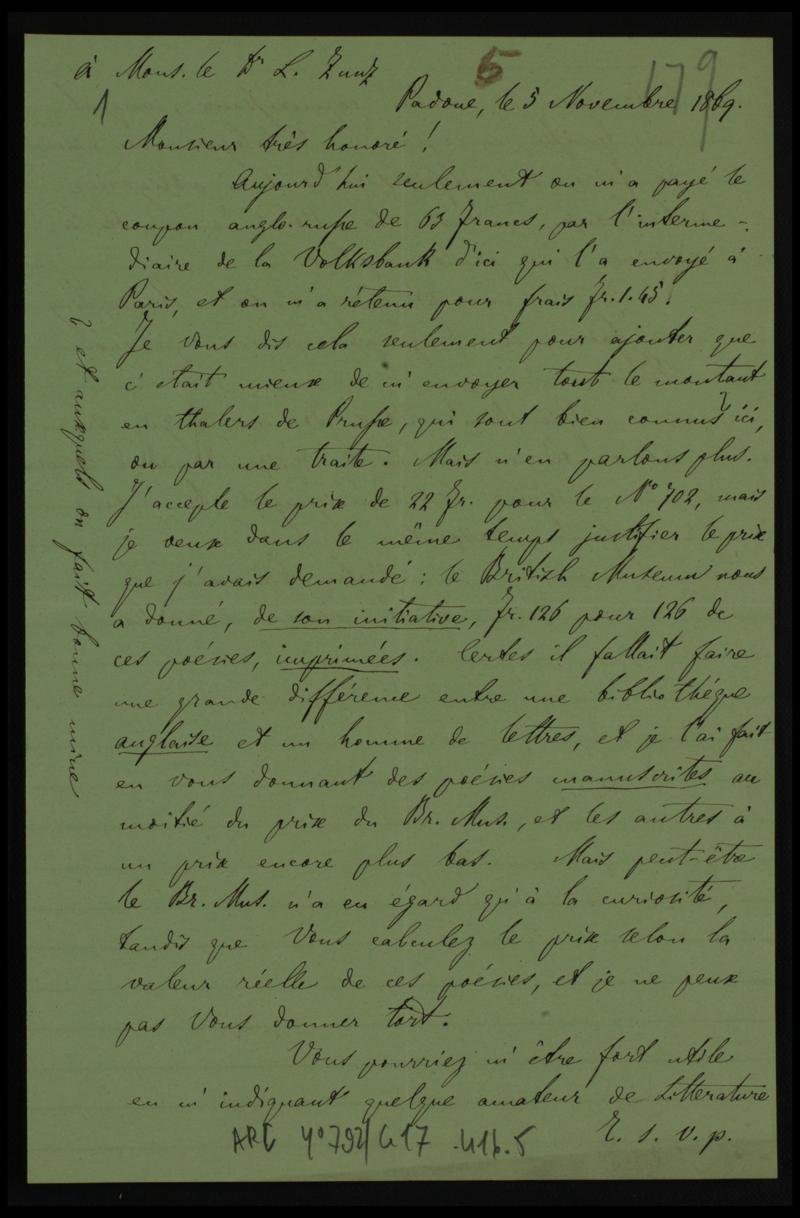 à Mons. le Dr L. Zunz
5
179
1
Padoue, le 5 Novembre 1869.
Monsieur très honoré !
Aujourd'hui seulement on m'a payé le
coupon anglo-russe de 63 francs, par l'interme-
diaire de la Volksbank d'ici qui l'a envoyé à
Paris, et on m'a retenu pour frais fr. 1.45.
Je vous dis cela seulement pour ajouter que
c'était mieux de m'envoyer tout le montant
en thalers de Prusse, qui sont bien connus ici,
ou par une traite. Mais n'en parlons plus.
J'accepte le prix de 22 fr. pour le No 702, mais
je veux dans le même temps justifier le prix
que j'avais demandé : le British Museum nous
a donné, de son initiative, fr. 126 pour 126 de
ces poésies, imprimées. Certes il fallait faire
une grande différence entre une bibliothéque
anglaise et un homme de lettres, et je l'ai fait
en vous donnant des poésies manuscrites au
moitié du prix du Br. Mus., et les autres à
un prix encore plus bas. Mais peut-être
le Br. Mus. n'a eu égard qu'à la curiosité,
tandis que Vous calculez le prix selon la
valeur réelle de ces poésies, et je ne peux
pas Vous donner tort.
Vous pourriez m'être fort utile
en m'indiquant quelque amateur de Litterature
T. s. v. p.
et auxquels on fait bonne mine
ARC 4° 792/G17 -416.5